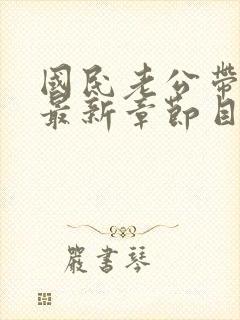 國民老公帶
最新章節目
嚴書琴